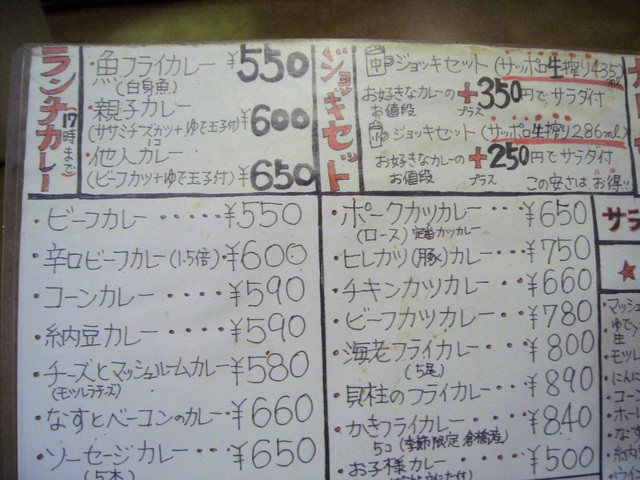 ランチカレー (17時まで)
・魚フライカレー ¥550
(白身魚)
・親子カレー
(ササミチーズカツ+ゆで玉子付) ¥600
1コ
・他人カレー
(ビーフカツ+ゆで玉子付) ¥650
ジョッキセット
中 ジョッキセット (サッポロ生搾り435
お好きなカレーの +350円で サラダ付
お値段 プラス
ジョッキセット (サッポロ生搾り286ml)
お好きなカレーの +250円で サラダ付
お値段 プラス この安さは お得!!
・ビーフカレー・・・・・¥550
・辛口ビーフカレー(1.5倍)・¥600
・コーンカレー・・・・¥590
・納豆カレー・・・・¥590
・チーズとマッシュルームカレー ¥580
(モッツァレラチーズ)
・なすとベーコンのカレー・・¥660
・ソーセージカレー・・・¥650
(5本)
・ポークカツカレー・・・¥650
(ロース) 定番カツカレー
・ヒレカツ(豚)カレー・・¥750
・チキンカツカレー・・・¥660
・ビーフカツカレー・・・¥780
・海老フライカレー・・・¥800
(5尾)
・貝柱のフライカレー・・¥890
・かきフライカレー・・・・¥840
5コ (季節限定 倉橋産)
・お子様カレー・・・¥500
サラ
★
・マッシュ
ゆで
生
・モッツ
・にんに
・コーン
・ホー
・なす
・納豆
・ウイン